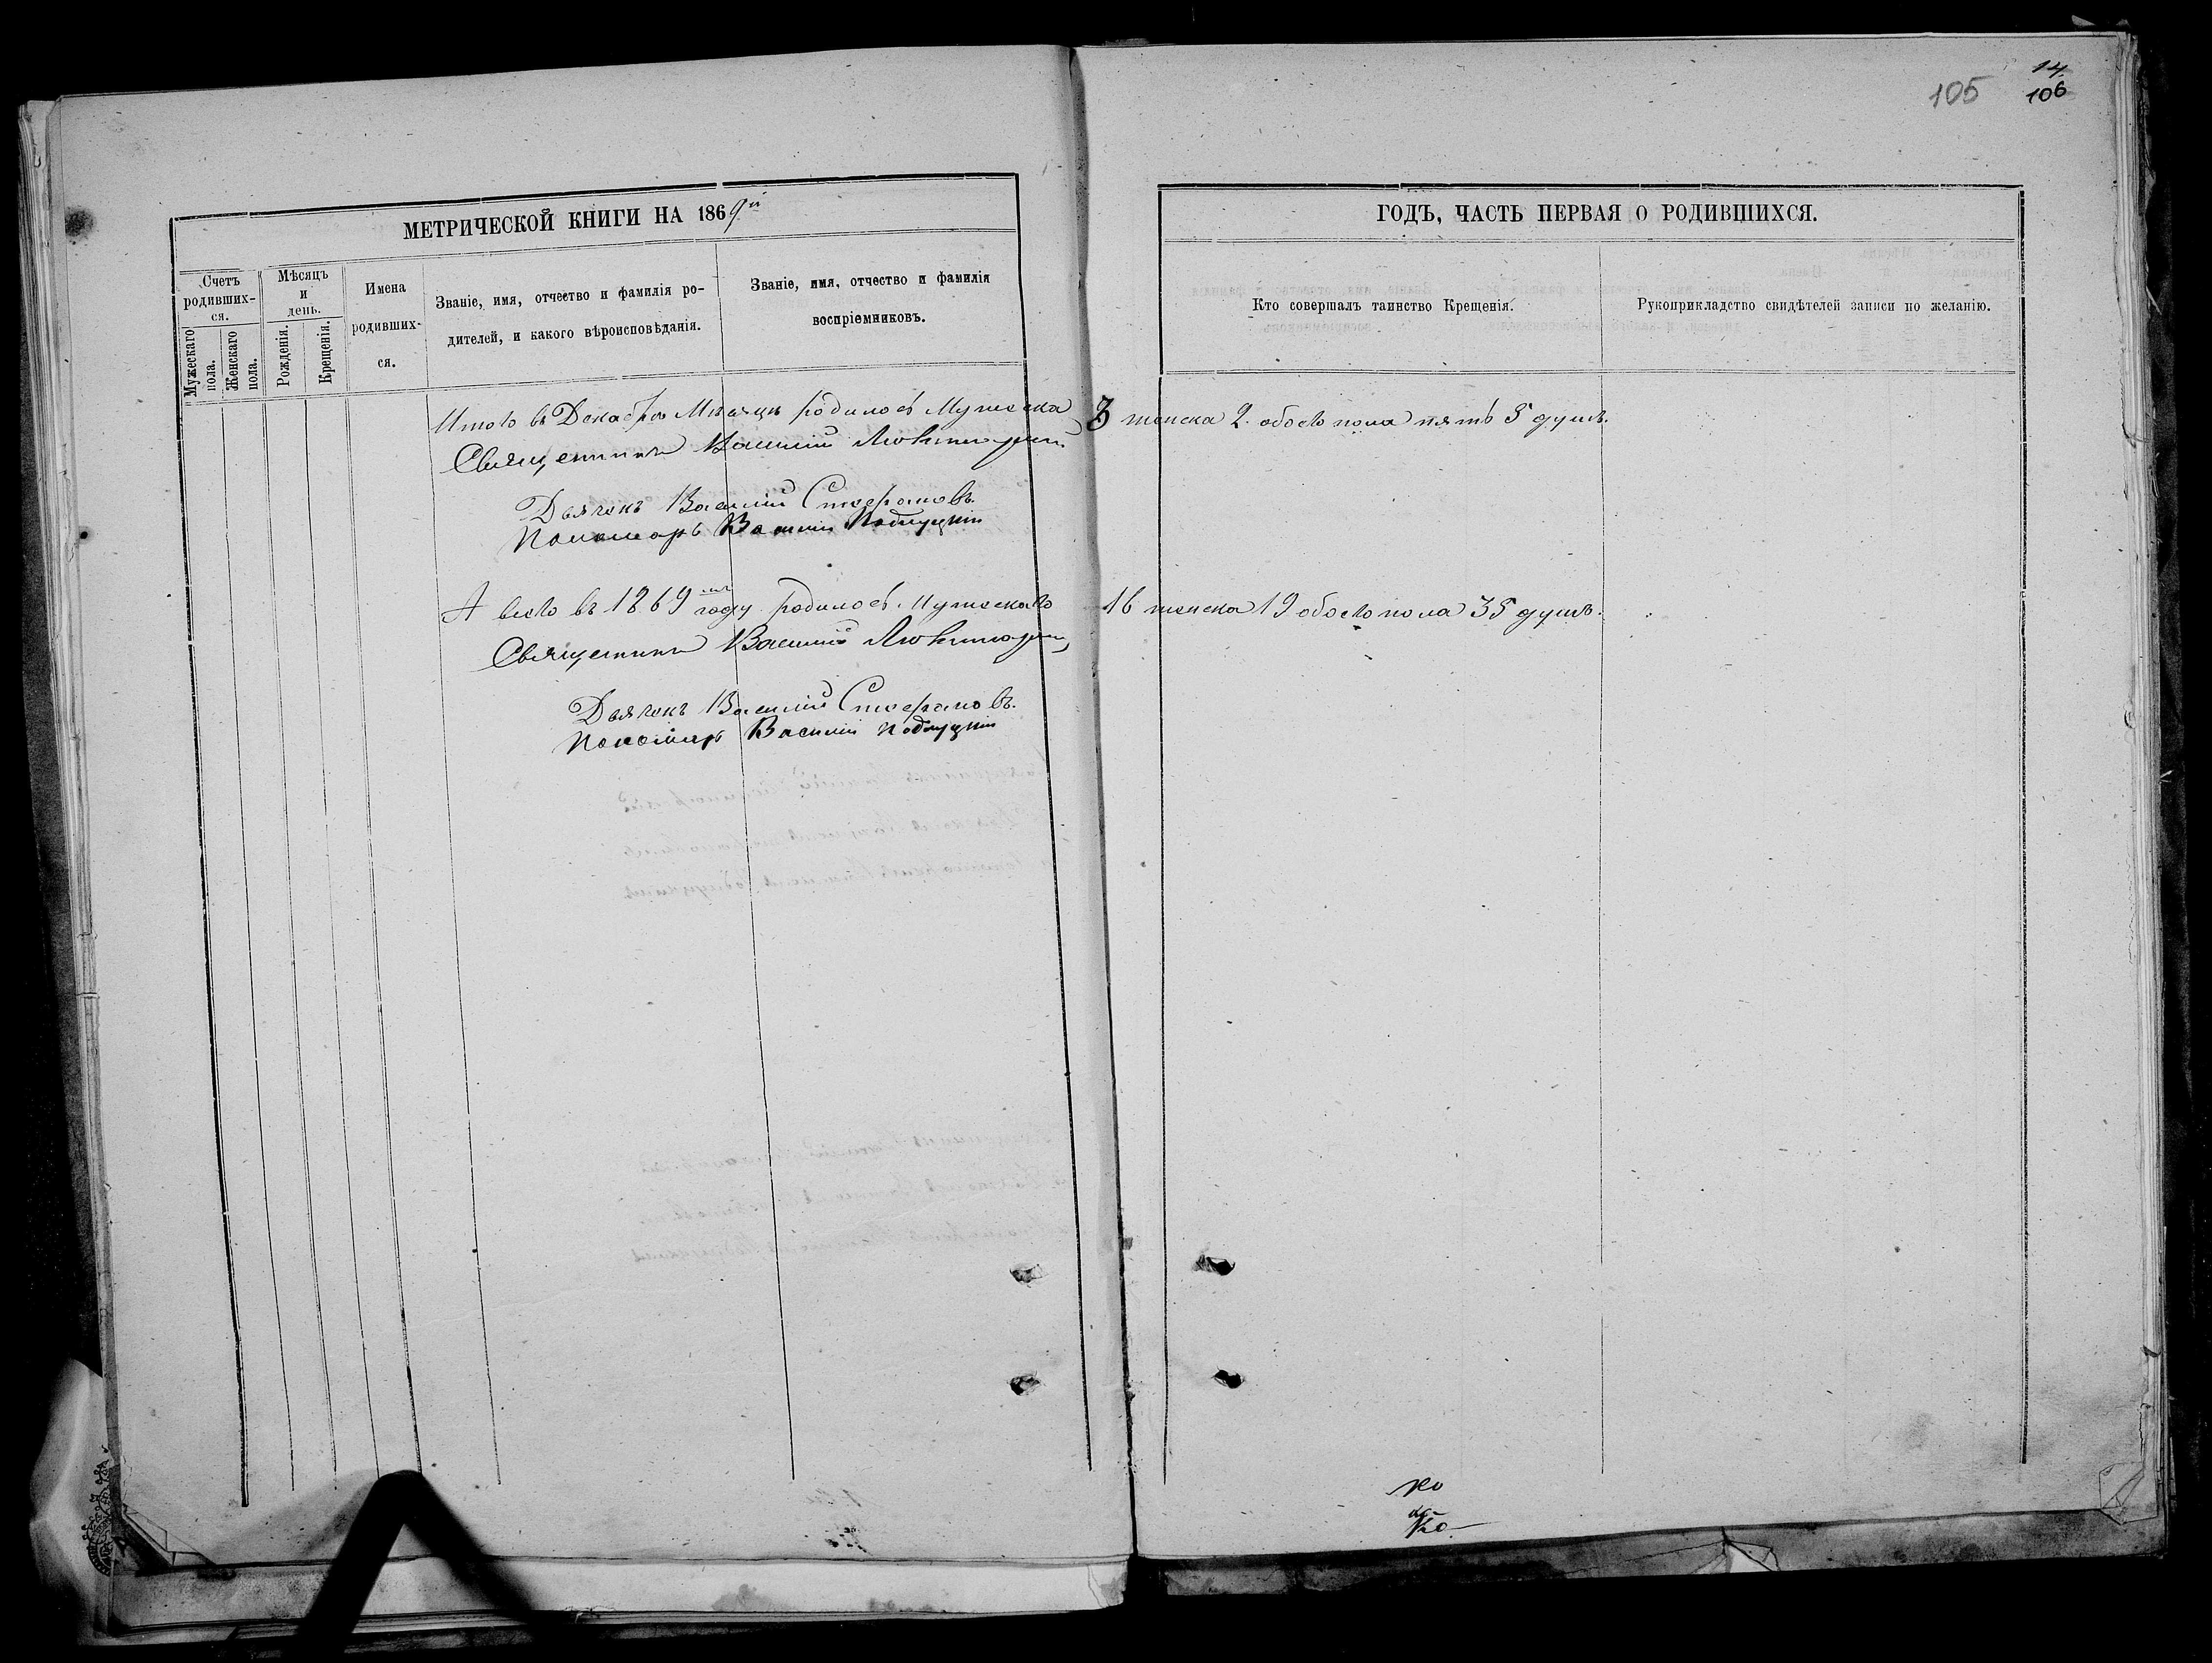 14.
105 106
МЕТРИЧЕСКОЙ КНИГИ НА 1869й
ГОДЪ, ЧАСТЬ ПЕРВАЯ О РОДИВШИХСЯ.
Счетъ родивших-ся.
Мужескаго пола.
Женскаго пола.
Мѣсяцъ и день.
Рожденія.
Крещенія.
Имена родивших-ся.
Званіе, имя, отчество и фамилія ро-
дителей, и какого вѣроисповѣданія.
Званіе, имя, отчество и фамилія
воспріемниковъ.
Кто совершалъ таинство Крещенія.
Рукоприкладство свидѣтелей записи по желанію.
Итого въ Декабрѣ Мѣсяцѣ родилось Мужеска 3 женска 2. обоего пола пять 5 душъ.
Священникъ Василий
Дьячокъ Василий Стефановъ.
Пономарь Василий Подлуцкий
А всего въ 1869мъ году родилось Мужескаго 16 женска 19 обоего пола 35 душъ.
Священникъ Василий
Дьячокъ Василий Стефановъ.
Пономарь Василий Подлуцкий